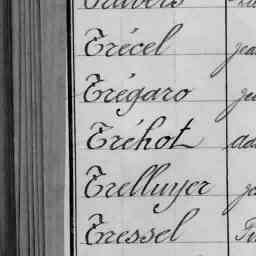 Travers
Trécel
Trégaro
Tréhot
Trelluyer
Tressel